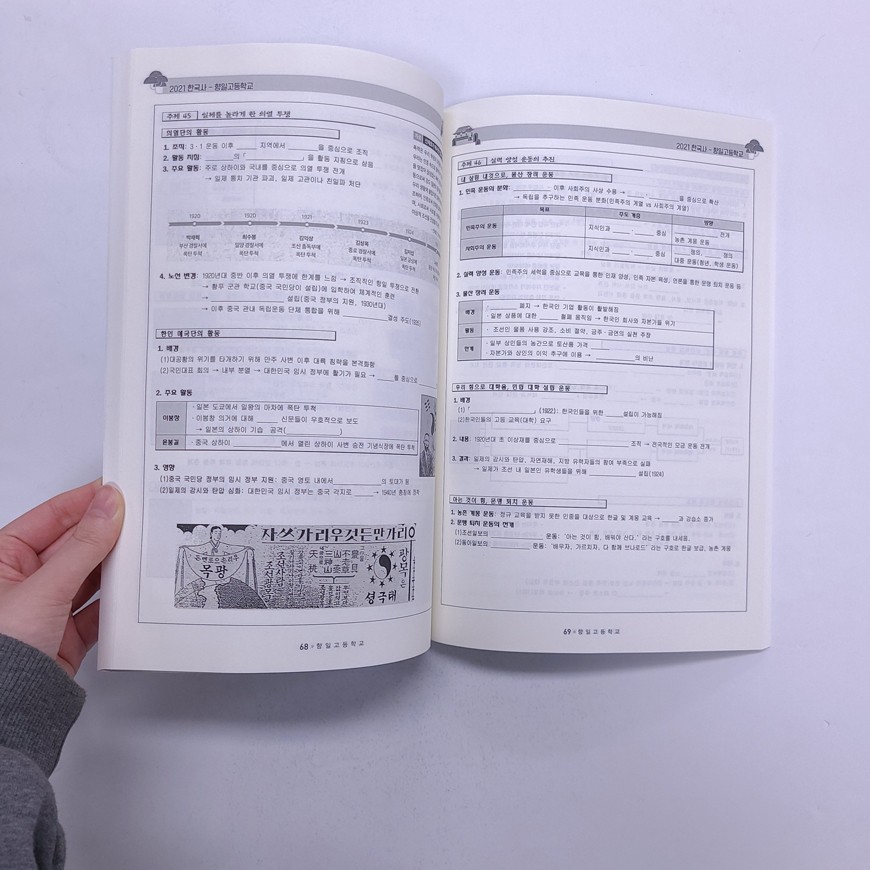 2021 한국사 - 향일고등학교
주제 45 일제를 놀라게 한 의열 투쟁
의열단의 활동
1. 조직: 3·1 운동 이후 ______ 지역에서 ______을 중심으로 조직
2. 활동 지침: ______의 「______」을 활동 지침으로 삼음
3. 주요 활동: 주로 상하이와 국내를 중심으로 의열 투쟁 전개
→ 일제 통치 기관 파괴, 일제 고관이나 친일파 처단
1920 1920 1921 1923 1924
박재혁 최수봉 김익상 김상옥
부산 경찰서에 밀양 경찰서에 조선 총독부에 종로 경찰서에
폭탄 투척 폭탄 투척 폭탄 투척 폭탄 투척
4. 노선 변경: 1920년대 중반 이후 의열 투쟁에 한계를 느낌 → 조직적인 항일 투쟁으로 전환
→ 황푸 군관 학교(중국 국민당이 설립)에 입학하여 체계적인 훈련
→ ______ 설립(중국 정부의 지원, 1930년대)
→ 이후 중국 관내 독립운동 단체 통합을 위해 ______결성 주도(1935)
한인 애국단의 활동
1. 배경
(1)대공황의 위기를 타개하기 위해 만주 사변 이후 대륙 침략을 본격화함
(2)국민대표 회의 → 내부 분열 → 대한민국 임시 정부에 활기가 필요 → ______를 중심으로
2. 주요 활동
이봉창
·일본 도쿄에서 일왕의 마차에 폭탄 투척
·이봉창 의거에 대해______ 신문들이 우호적으로 보도
→ 일본의 상하이 기습 공격(______)
윤봉길
·중국 상하이 ______에서 열린 상하이 사변 승전 기념식장에 폭탄 투척
3. 영향
(1)중국 국민당 정부의 임시 정부 지원: 중국 영토 내에서______의 토대가 됨
(2)일제의 감시와 탄압 심화: 대한민국 임시 정부는 중국 각지로 ______ → 1940년 충칭에 정착
자쓰가리우것든만가리가O
목광
광모는
셩극태
68 × 향일고등학교
2021 한국사 - 향일고등학교
주제 46 실력 양성 운동의 추진
내 살림 내것으로, 물산 장려 운동
1. 민족 운동의 분화: ______ 이후 사회주의 사상 수용 → ______을 중심으로 확산
→ 독립을 추구하는 민족 운동 분화(민족주의 계열 vs 사회주의 계열)
목표 주도 계층 방향
민족주의 운동 지식인과 ______ 중심 ______ 전개
사회주의 운동 지식인과 ______ 중심 농촌 계몽 운동
______쟁의, ______쟁의
대중 운동(청년, 학생 운동)
2. 실력 양성 운동: 민족주의 세력을 중심으로 교육을 통한 인재 양성, 민족 자본 육성, 언론을 통한 문맹 퇴치 운동 등
3. 물산 장려 운동
배경
·______ 폐지 → 한국인 기업 활동이 활발해짐
·일본 상품에 대한 ______ 철폐 움직임 → 한국인 회사와 자본가들 위기
활동
·조선인 물품 사용 강조, 소비 절약, 금주·금연의 실천 주장
한계
·일부 상인들의 농간으로 토산품 가격______
·자본가와 상인의 이익 추구에 이용 → ______의 비난
우리 힘으로 대학을, 민립 대학 설립 운동
1. 배경
(1)「______」(1922): 한국인들을 위한______설립이 가능해짐
(2)한국인들의 고등 교육(대학) 요구
2. 내용: 1920년대 초 이상재를 중심으로 ______ 조직 → 전국적인 모금 운동 전개
3. 결과: 일제의 감시와 탄압, 자연재해, 지방 유력자들의 참여 부족으로 실패
→ 일제가 조선 내 일본인 유학생들을 위해 ______설립(1924)
아는 것이 힘, 문맹 퇴치 운동
1. 농촌 계몽 운동: 정규 교육을 받지 못한 민중을 대상으로 한글 및 계몽 교육 → ______과 강습소 증가
2. 문맹 퇴치 운동의 전개
(1)조선일보의 ______ 운동: '아는 것이 힘, 배워야 산다.' 라는 구호를 내세움.
(2)동아일보의 ______ 운동: '배우자, 가르치자, 다 함께 브나로드' 라는 구호로 한글 보급, 농촌 계몽
69 × 향일고등학교